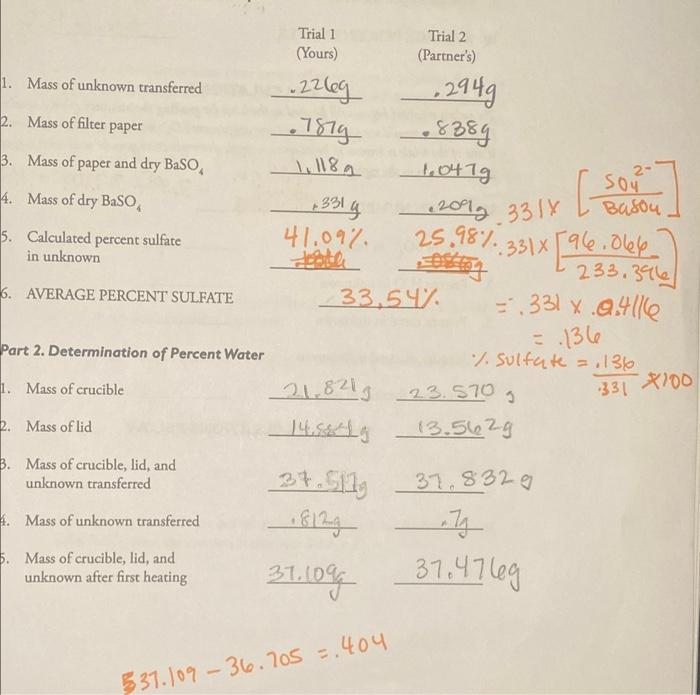 Trial 1 Trial 2
(Yours) (Partner's)
1. Mass of unknown transferred .226g .294g
2. Mass of filter paper .787g .838g
3. Mass of paper and dry BaSO₄ 1.118g 1.047g
4. Mass of dry BaSO₄ .331g .209g .331 x [SO4 2- / BaSO4]
5. Calculated percent sulfate 41.09%. 25.98%. .331 x [96.066 / 233.396]
in unknown
6. AVERAGE PERCENT SULFATE 33.54% = .331 x 0.4116
= .136
Part 2. Determination of Percent Water % sulfate = .136 / .331 x100
1. Mass of crucible 21.821g 23.570g
2. Mass of lid 13.562g
3. Mass of crucible, lid, and
unknown transferred 37.517g 37.832g
4. Mass of unknown transferred .812g .7g
5. Mass of crucible, lid, and
unknown after first heating 37.109g 37.476g
37.109 - 36.705 = .404